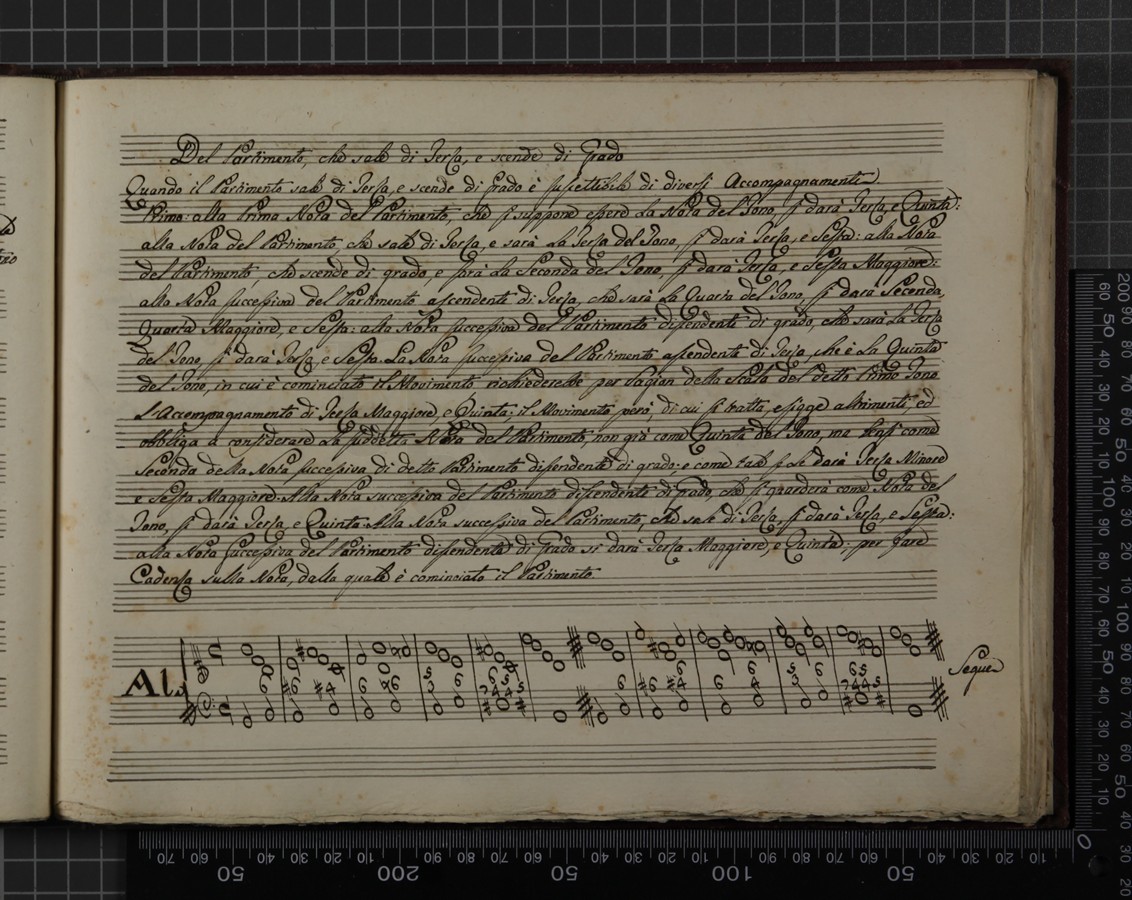 Del Partimento, che sale di Terza, e scende di Grado
Quando il Partimento sale di Terza, e scende di Grado è suscettibile di diversi Accompagnamenti.
Primo: alla prima Nota del Partimento, che si suppone essere la Nota del Tono, si darà Terza, e Quinta:
alla Nota del Partimento, che sale di Terza, e sarà la Terza del Tono, si darà Terza, e Sesta: alla Nota
del Partimento, che scende di grado, e sarà la Seconda del Tono, si darà Terza, e Sesta Maggiore:
alla Nota successiva del Partimento ascendente di Terza, che sarà la Quarta del Tono, si darà Seconda,
Quarta Maggiore, e Sesta: alla Nota successiva del Partimento discendente di grado, che sarà la Terza
del Tono, si darà Terza, e Sesta. La Nota successiva del Partimento ascendente di Terza, che è la Quinta
del Tono, in cui è cominciato il Movimento richiederebbe per ragion della Scala del detto Primo Tono
l'Accompagnamento di Terza Maggiore, e Quinta: il Movimento però, di cui si tratta, esigge altrimenti, ed
obbliga a considerare la suddetta Nota del Partimento, non già come Quinta del Tono, ma bensì come
Seconda della Nota successiva di detto Partimento discendente di grado; e come tale se le darà Terza Minore
e Sesta Maggiore. Alla Nota successiva del Partimento discendente di Grado, che si guarderà come Nota del
Tono, si darà Terza, e Quinta. Alla Nota successiva del Partimento, che sale di Terza, si darà Terza, e Sesta:
alla Nota successiva del Partimento discendente di Grado si darà Terza Maggiore, e Quinta: per fare
Cadenza sulla Nota, dalla quale è cominciato il Partimento.
Segue